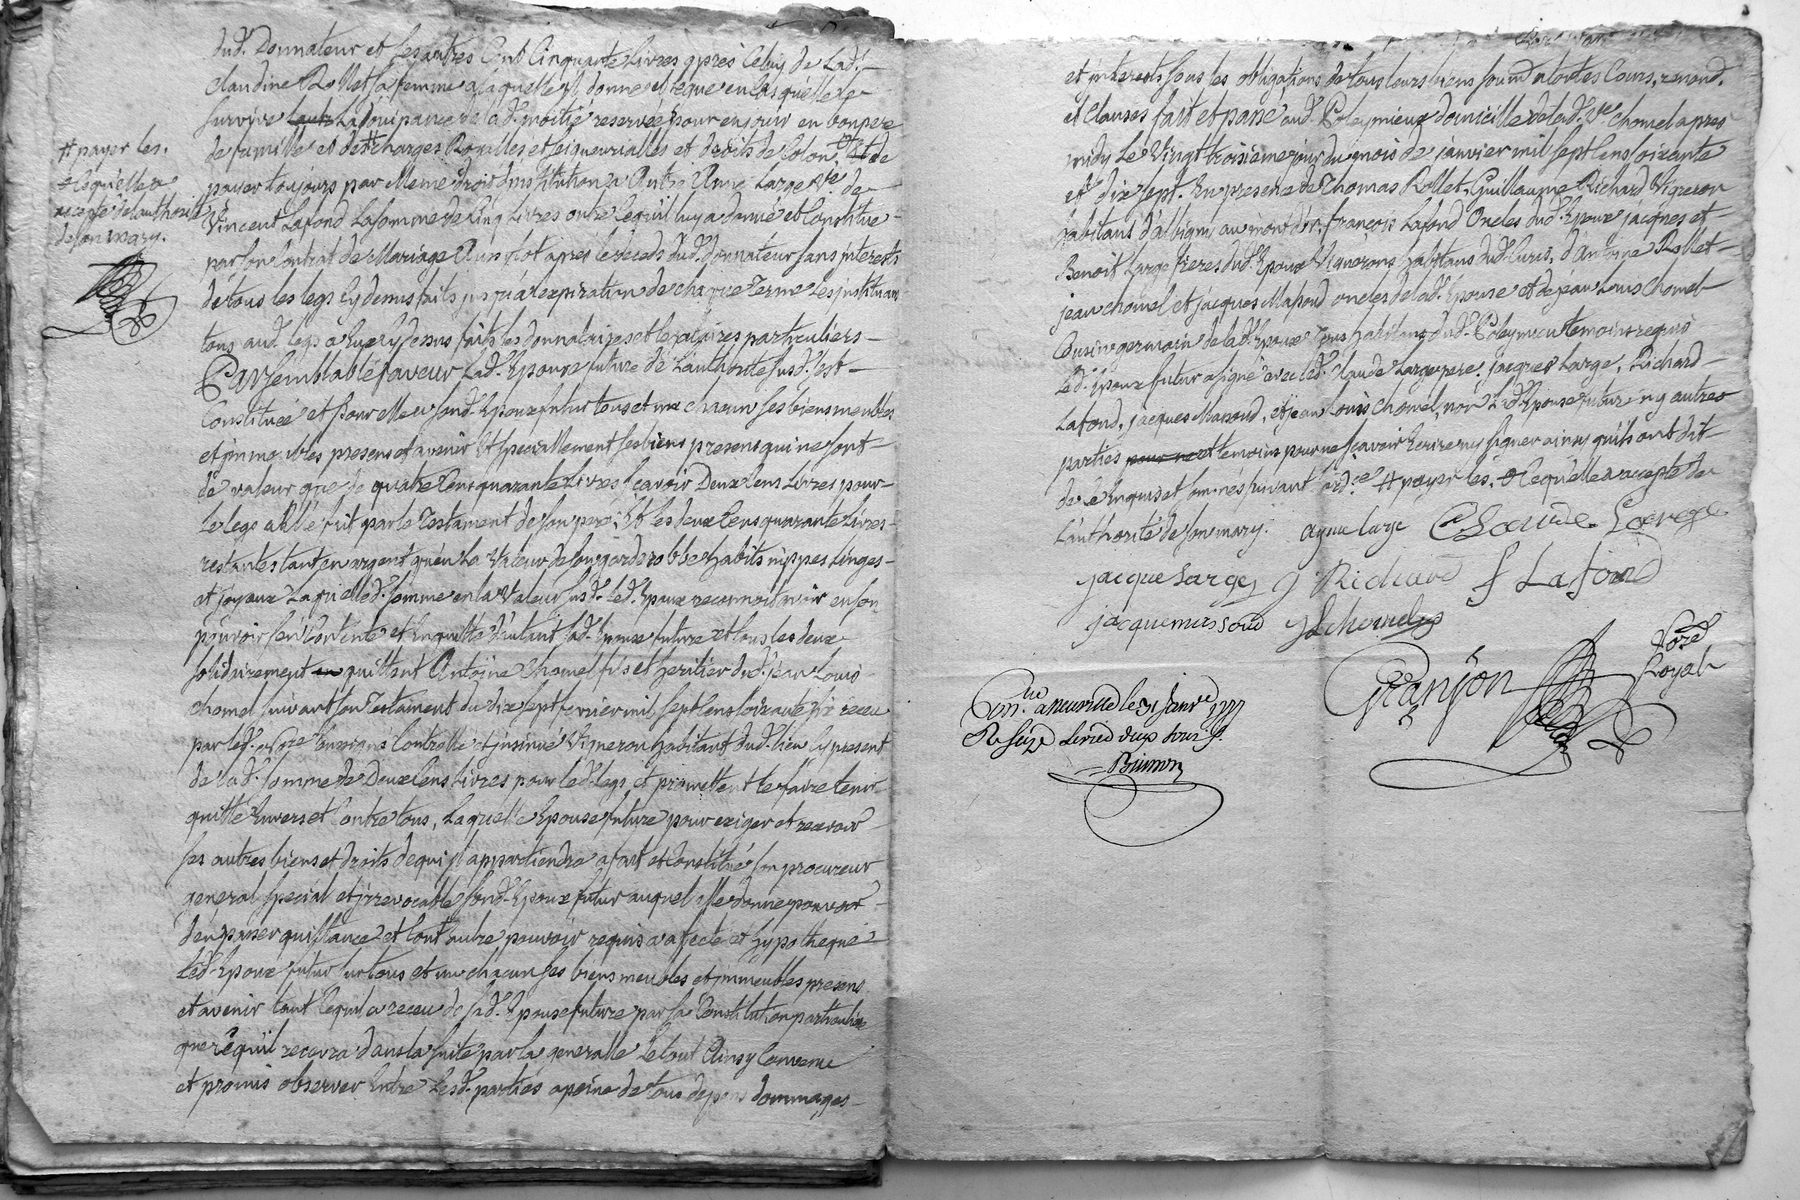 dud. Donnateur et les autres Cent Cinquante Livres après Celuy de Lad.
Claudine Rollet sa femme a laquelle il donne et legue en cas quelle le
survive La Jouissance de lad. moitié reservée pour en jouir en bon pere
de famille et des charges Royalles et seigneurialles et droits de
payer toujours par Meme droit dinstitution a Autre Anne Large Ve de
Vincent Lafond La somme de Cinq Livres outre ce quil luy a donné et Constitué
par son Contrat de Mariage Aussitot apres le deceds dud. donnateur sans interests
de tous les legs Cy dessus faits jusqu'a l'expiration de chaque Terme Les instituant
tous aud. legs a Eux Cy dessus faits les donnataires et legataires particuliers
Par semblable faveur Lad. Epouse future de l'authorité susd. s'est
Constituée et pour Elle aud. Epoux futur tous et un chacun ses biens meubles
et immeubles presens et avenir Et specialement ses biens presens qui ne sont
de valeur que de quatre Cens quarante Livres scavoir Deux Cens Livres pour
le legs a Elle fait par le Testament de son pere, Et les deux Cens quarante Livres
restantes tant en argent qu'en La Valeur de son garderobbe habits nippes linges
et joyaux Laquelle d. somme en la Valeur susd. led. Epoux reconnoit avoir en son
pouvoir s'en Contente et En quitte d'autant lad. Epouse future et tous les deux
solidairement quittent Antoine Chomel fils et heritier dud. jean Louis
chomel suivant son Testament du dix sept fevrier mil sept Cens soixante dix receu
par led. Nore soussigné Controllé et insinué Vigneron habitant dud. lieu Cy present
de lad. somme de Deux Cens Livres pour led. legs et promettent le faire tenir
quitte Envers et Contre tous, Laquelle Epouse future pour exiger et recevoir
ses autres biens et droits de qui il appartiendra a fait et Constitué son procureur
general special et irrevocable sond. Epoux futur auquel elle donne pouvoir
d'en passer quittance et tout autre pouvoir requis a afecté et hypothequé
Led. Epoux futur sur tous et un chacun ses biens meubles et immeubles presens
et avenir tant Ce quil a receu de sad. Epouse future par sa Constitution particuliere
que Ce quil recevra dans la suite par la generalle Le tout Ainsy Convenu
et promis observer Entre Lesd. parties a peine de tous depens dommages
# payer les.
Ce qu'elle a
accepté de l'authorité
de son mary.
et interests sous les obligations de tous leurs biens soumis a toutes Cours, renond.
et Clauses fait et passé aud. Poleymieux domicille de lad. Ve Chomel apres
midy Le Vingt troisieme jour du mois de janvier mil sept Cens soixante
et dix sept. En presence de Thomas Rollet, Guillaume Richard Vigneron
habitans d'albigni au mont d'or, françois Lafond Oncles dud. Epoux jacques et
Benoit Large freres dud. Epoux Vignerons habitans dud. Curis, d'Antoine Rollet
jean Chomel et jacques Massoud oncles de lad. Epouse et de jean Louis Chomel
Cousin germain de lad. Epouse Tous habitans dud. Poleymieux temoins requis
Led. Epoux futur a signé avec led. Claude Large pere, jacques Large, Richard
Lafond, jacques Massoud, et jean Louis Chomel, non Lad. Epouse future ny autres
parties pour ne et temoins pour ne scavoir Ecrire ny signer ainsy quils ont dit
de ce Enquis et sommés suivant ordce # payer les. # Ce qu'elle a accepté de
L'authorité de son mary. ayme large Claude Large
jacque Large g Richard f Lafond
jacque massoud JLchomel
Granjon Nore Royal
Conle a neuville le 31 janver 1777
R seize Livres dix sous
Brunon